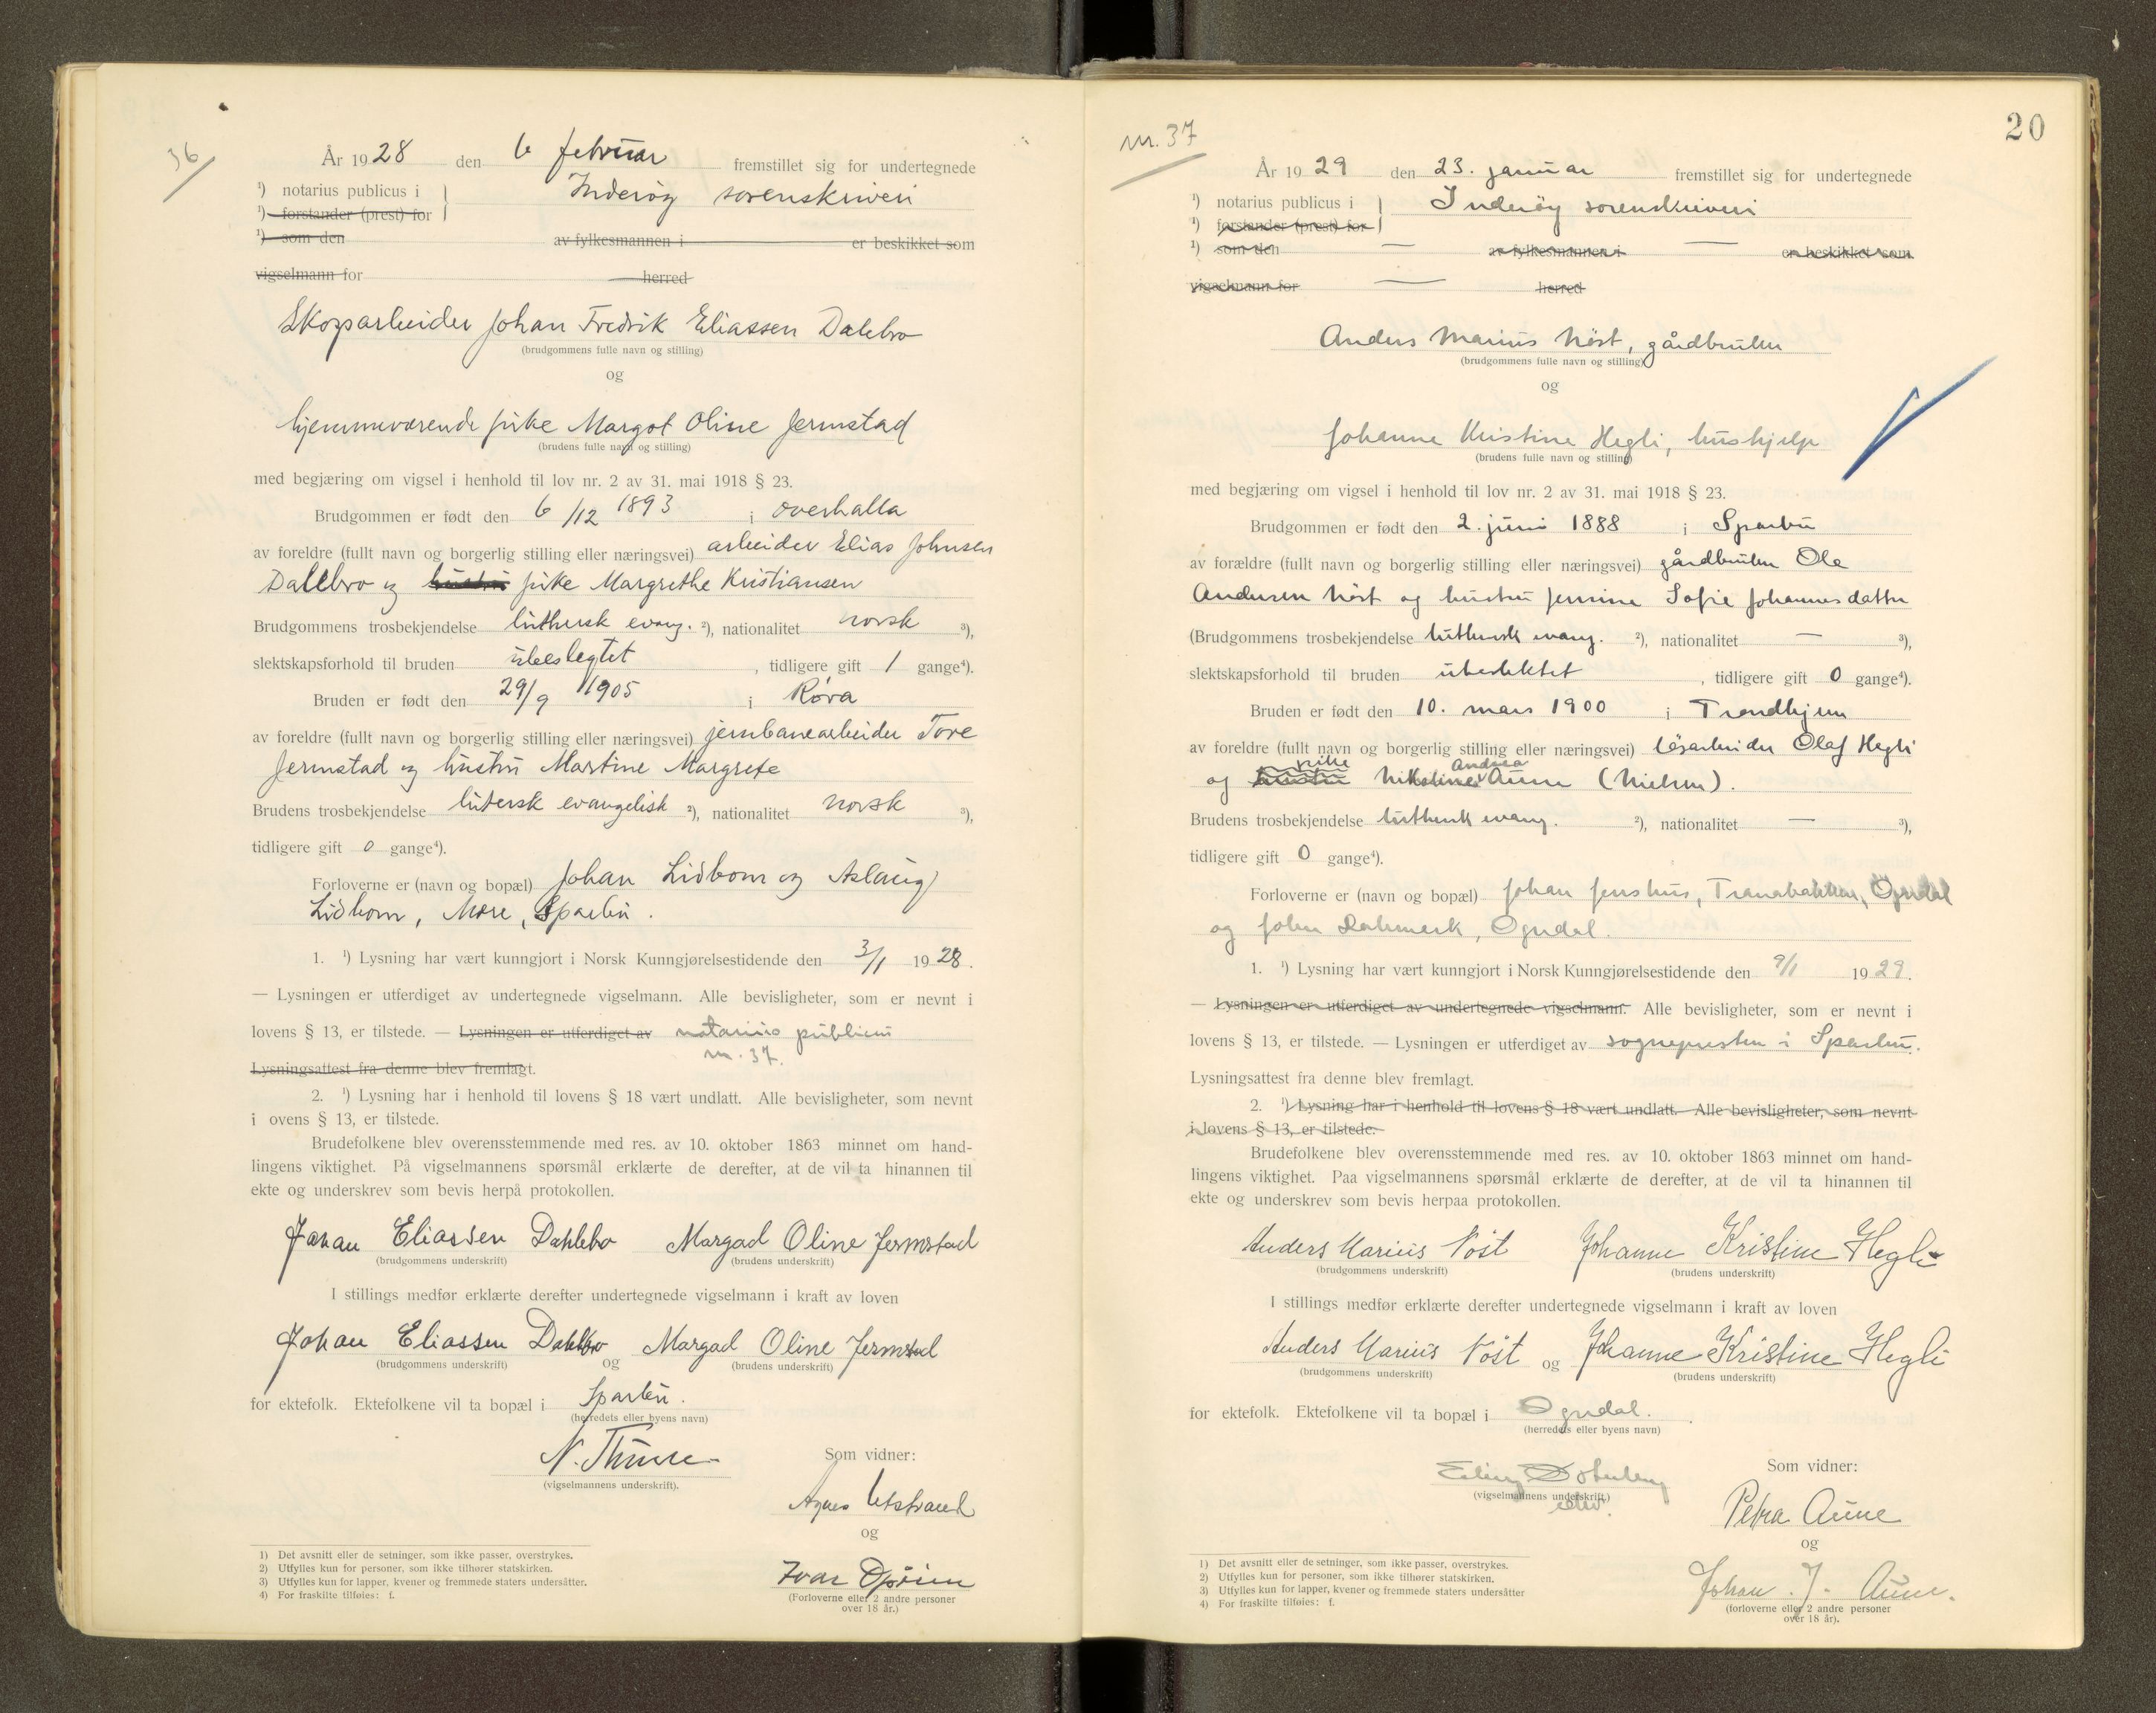 36/
År 1928 den 6 februar fremstillet sig for undertegnede
¹) notarius publicus i Inderøy sorenskriveri
¹) forstander (prest) for
¹) som den av fylkesmannen i er beskikket som
vigselmann for herred
Skogsarbeider Johan Fredrik Eliassen Dalebro
(brudgommens fulle navn og stilling)
og
hjemmeværende pike Margot Oline Jermstad
(brudens fulle navn og stilling)
med begjæring om vigsel i henhold til lov nr. 2 av 31. mai 1918 § 23.
Brudgommen er født den 6/12 1893 i Overhalla
av foreldre (fullt navn og borgerlig stilling eller næringsvei) arbeider Elias Johnsen
Dallbro og hustru pike Margrethe Kristiansen
Brudgommens trosbekjendelse luthersk evang. ²), nationalitet norsk ³),
slektskapsforhold til bruden ubeslegtet, tidligere gift 1 gange⁴).
Bruden er født den 29/9 1905 i Røra
av foreldre (fullt navn og borgerlig stilling eller næringsvei) jernbanearbeider Tore
Jermstad og hustru Martine Margrete
Brudens trosbekjendelse lutersk evangelisk ²), nationalitet norsk ³),
tidligere gift 0 gange⁴).
Forloverne er (navn og bopæl) Johan Lidbom og Aslaug
Lidbom, Mære, Sparbu.
1. ¹) Lysning har vært kunngjort i Norsk Kunngjørelsestidende den 3/1 1928.
— Lysningen er utferdiget av undertegnede vigselmann. Alle bevisligheter, som er nevnt i
lovens § 13, er tilstede. — Lysningen er utferdiget av notarius publicus
nr. 37.
Lysningsattest fra denne blev fremlagt.
2. ¹) Lysning har i henhold til lovens § 18 vært undlatt. Alle bevisligheter, som nevnt
i ovens § 13, er tilstede.
Brudefolkene blev overensstemmende med res. av 10. oktober 1863 minnet om hand-
lingens viktighet. På vigselmannens spørsmål erklærte de derefter, at de vil ta hinannen til
ekte og underskrev som bevis herpå protokollen.
Johan Eliassen Dahlebo Margad Oline Jermstad
(brudgommens underskrift) (brudens underskrift)
I stillings medfør erklærte derefter undertegnede vigselmann i kraft av loven
Johan Eliassen Dahlbro og Margad Oline Jermstad
(brudgommens underskrift) (brudens underskrift)
for ektefolk. Ektefolkene vil ta bopæl i Sparbu.
(herredets eller byens navn)
N. Thune
(vigselmannens underskrift).
Som vidner:
Agnes Utstrand
og
Ivar
(Forloverne eller 2 andre personer
over 18 år.)
1) Det avsnitt eller de setninger, som ikke passer, overstrykes.
2) Utfylles kun for personer, som ikke tilhører statskirken.
3) Utfylles kun for lapper, kvener og fremmede staters undersåtter.
4) For fraskilte tilføies: f.
20
nr. 37
År 1929 den 23. januar fremstillet sig for undertegnede
¹) notarius publicus i Inderøy sorenskriveri
¹) forstander (prest) for
¹) som den — av fylkesmannen i — er beskikket som
vigselmann for — herred
Anders Marius Nøst, gårdbruker
(brudgommens fulle navn og stilling)
og
Johanne Kristine Hegli, hushjelp
(brudens fulle navn og stilling)
med begjæring om vigsel i henhold til lov nr. 2 av 31. mai 1918 § 23.
Brudgommen er født den 2. juni 1888 i Sparbu
av forældre (fullt navn og borgerlig stilling eller næringsvei) gårdbruker Ole
Andersen Nøst og hustru Jensine Sofie Johannesdatter
(Brudgommens trosbekjendelse luthersk evang. ²), nationalitet — ³),
slektskapsforhold til bruden ubeslektet, tidligere gift 0 gange⁴).
Bruden er født den 10. mars 1900 i Trondhjem
av foreldre (fullt navn og borgerlig stilling eller næringsvei) løsarbeider Olaf Hegli
pike Andrea
og hustru Nikoline Aune (Nielsen).
Brudens trosbekjendelse luthersk evang. ²), nationalitet — ³),
tidligere gift 0 gange⁴).
Forloverne er (navn og bopæl) Johan Jenshus, Tranabakken, Ogndal
og John Dahmerk, Ogndal.
1. ¹) Lysning har vært kunngjort i Norsk Kunngjørelsestidende den 9/1 1929.
— Lysningen er utferdiget av undertegnede vigselmann. Alle bevisligheter, som er nevnt i
lovens § 13, er tilstede. — Lysningen er utferdiget av sognepresten i Sparbu.
Lysningsattest fra denne blev fremlagt.
2. ¹) Lysning har i henhold til lovens § 18 vært undlatt. Alle bevisligheter, som nevnt
i lovens § 13, er tilstede.
Brudefolkene blev overensstemmende med res. av 10. oktober 1863 minnet om hand-
lingens viktighet. Paa vigselmannens spørsmål erklærte de derefter, at de vil ta hinannen til
ekte og underskrev som bevis herpaa protokollen.
Anders Marius Nöst Johanne Kristine Hegli
(brudgommens underskrift) (brudens underskrift)
I stillings medfør erklærte derefter undertegnede vigselmann i kraft av loven
Anders Marius Nöst og Johanne Kristine Hegli
(brudgommens underskrift) (brudens underskrift)
for ektefolk. Ektefolkene vil ta bopæl i Ogndal.
(herredets eller byens navn)
Erling
(vigselmannens underskrift.)
Som vidner:
Petra Aune
og
Johan. J. Aune.
(forloverne eller 2 andre personer
over 18 år).
1) Det avsnitt eller de setninger, som ikke passer, overstrykes.
2) Utfylles kun for personer, som ikke tilhører statskirken.
3) Utfylles kun for lapper, kvener og fremmede staters undersåtter
4) For fraskilte tilføies: f.